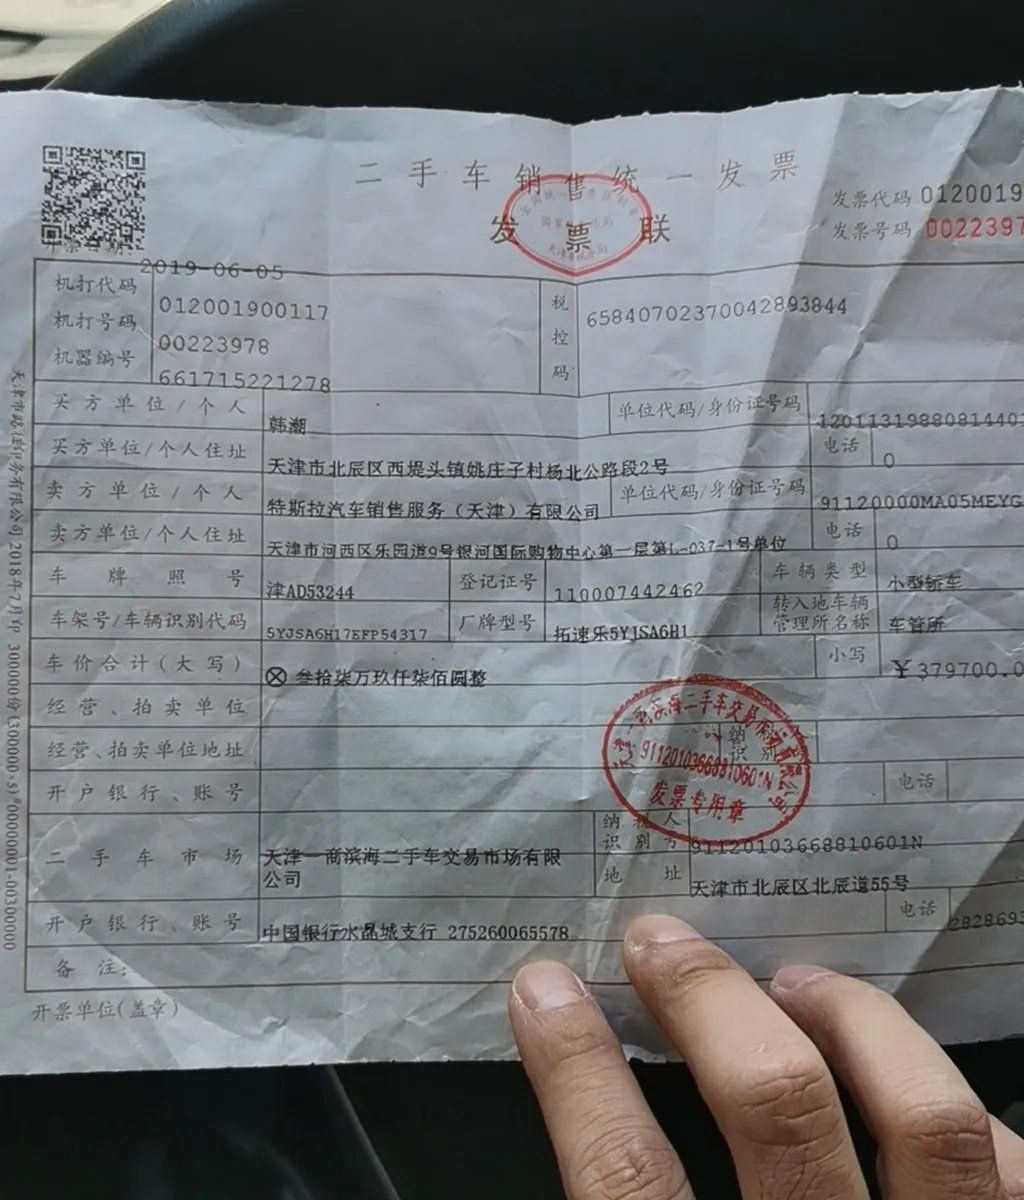 二手车销售统一发票
发票联
发票代码 0120019
发票号码 0022397
开票日期: 2019-06-05
机打代码 012001900117
机打号码 00223978
机器编号 661715221278
税控码 65840702370042893844
买方单位/个人 韩潮 单位代码/身份证号码 12011319880814401
买方单位/个人住址 天津市北辰区西堤头镇姚庄子村杨北公路段2号 电话 0
卖方单位/个人 特斯拉汽车销售服务(天津)有限公司 单位代码/身份证号码 91120000MA05MEYG
卖方单位/个人住址 天津市河西区乐园道9号银河国际购物中心第一层第L-037-1号单位 电话 0
车牌照号 津AD53244 登记证号 110007442462 车辆类型 小型轿车
车架号/车辆识别代码 5YJSA6H17EFP54317 厂牌型号 拓速乐5YJSA6H1 转入地车辆管理所名称 车管所
车价合计(大写) ⊗ 叁拾柒万玖仟柒佰圆整 小写 ¥379700.0
经营、拍卖单位
经营、拍卖单位地址 纳 识别
开户银行、账号 电话
二手车市场 天津一商滨海二手车交易市场有限公司 纳税人识别号 91120103668810601N
地址 天津市北辰区北辰道55号
开户银行、账号 中国银行水晶城支行 275260065578 电话 282869
备注:
开票单位(盖章)
天津一商滨海二手车交易市场有限公司
91120103668810601N
发票专用章